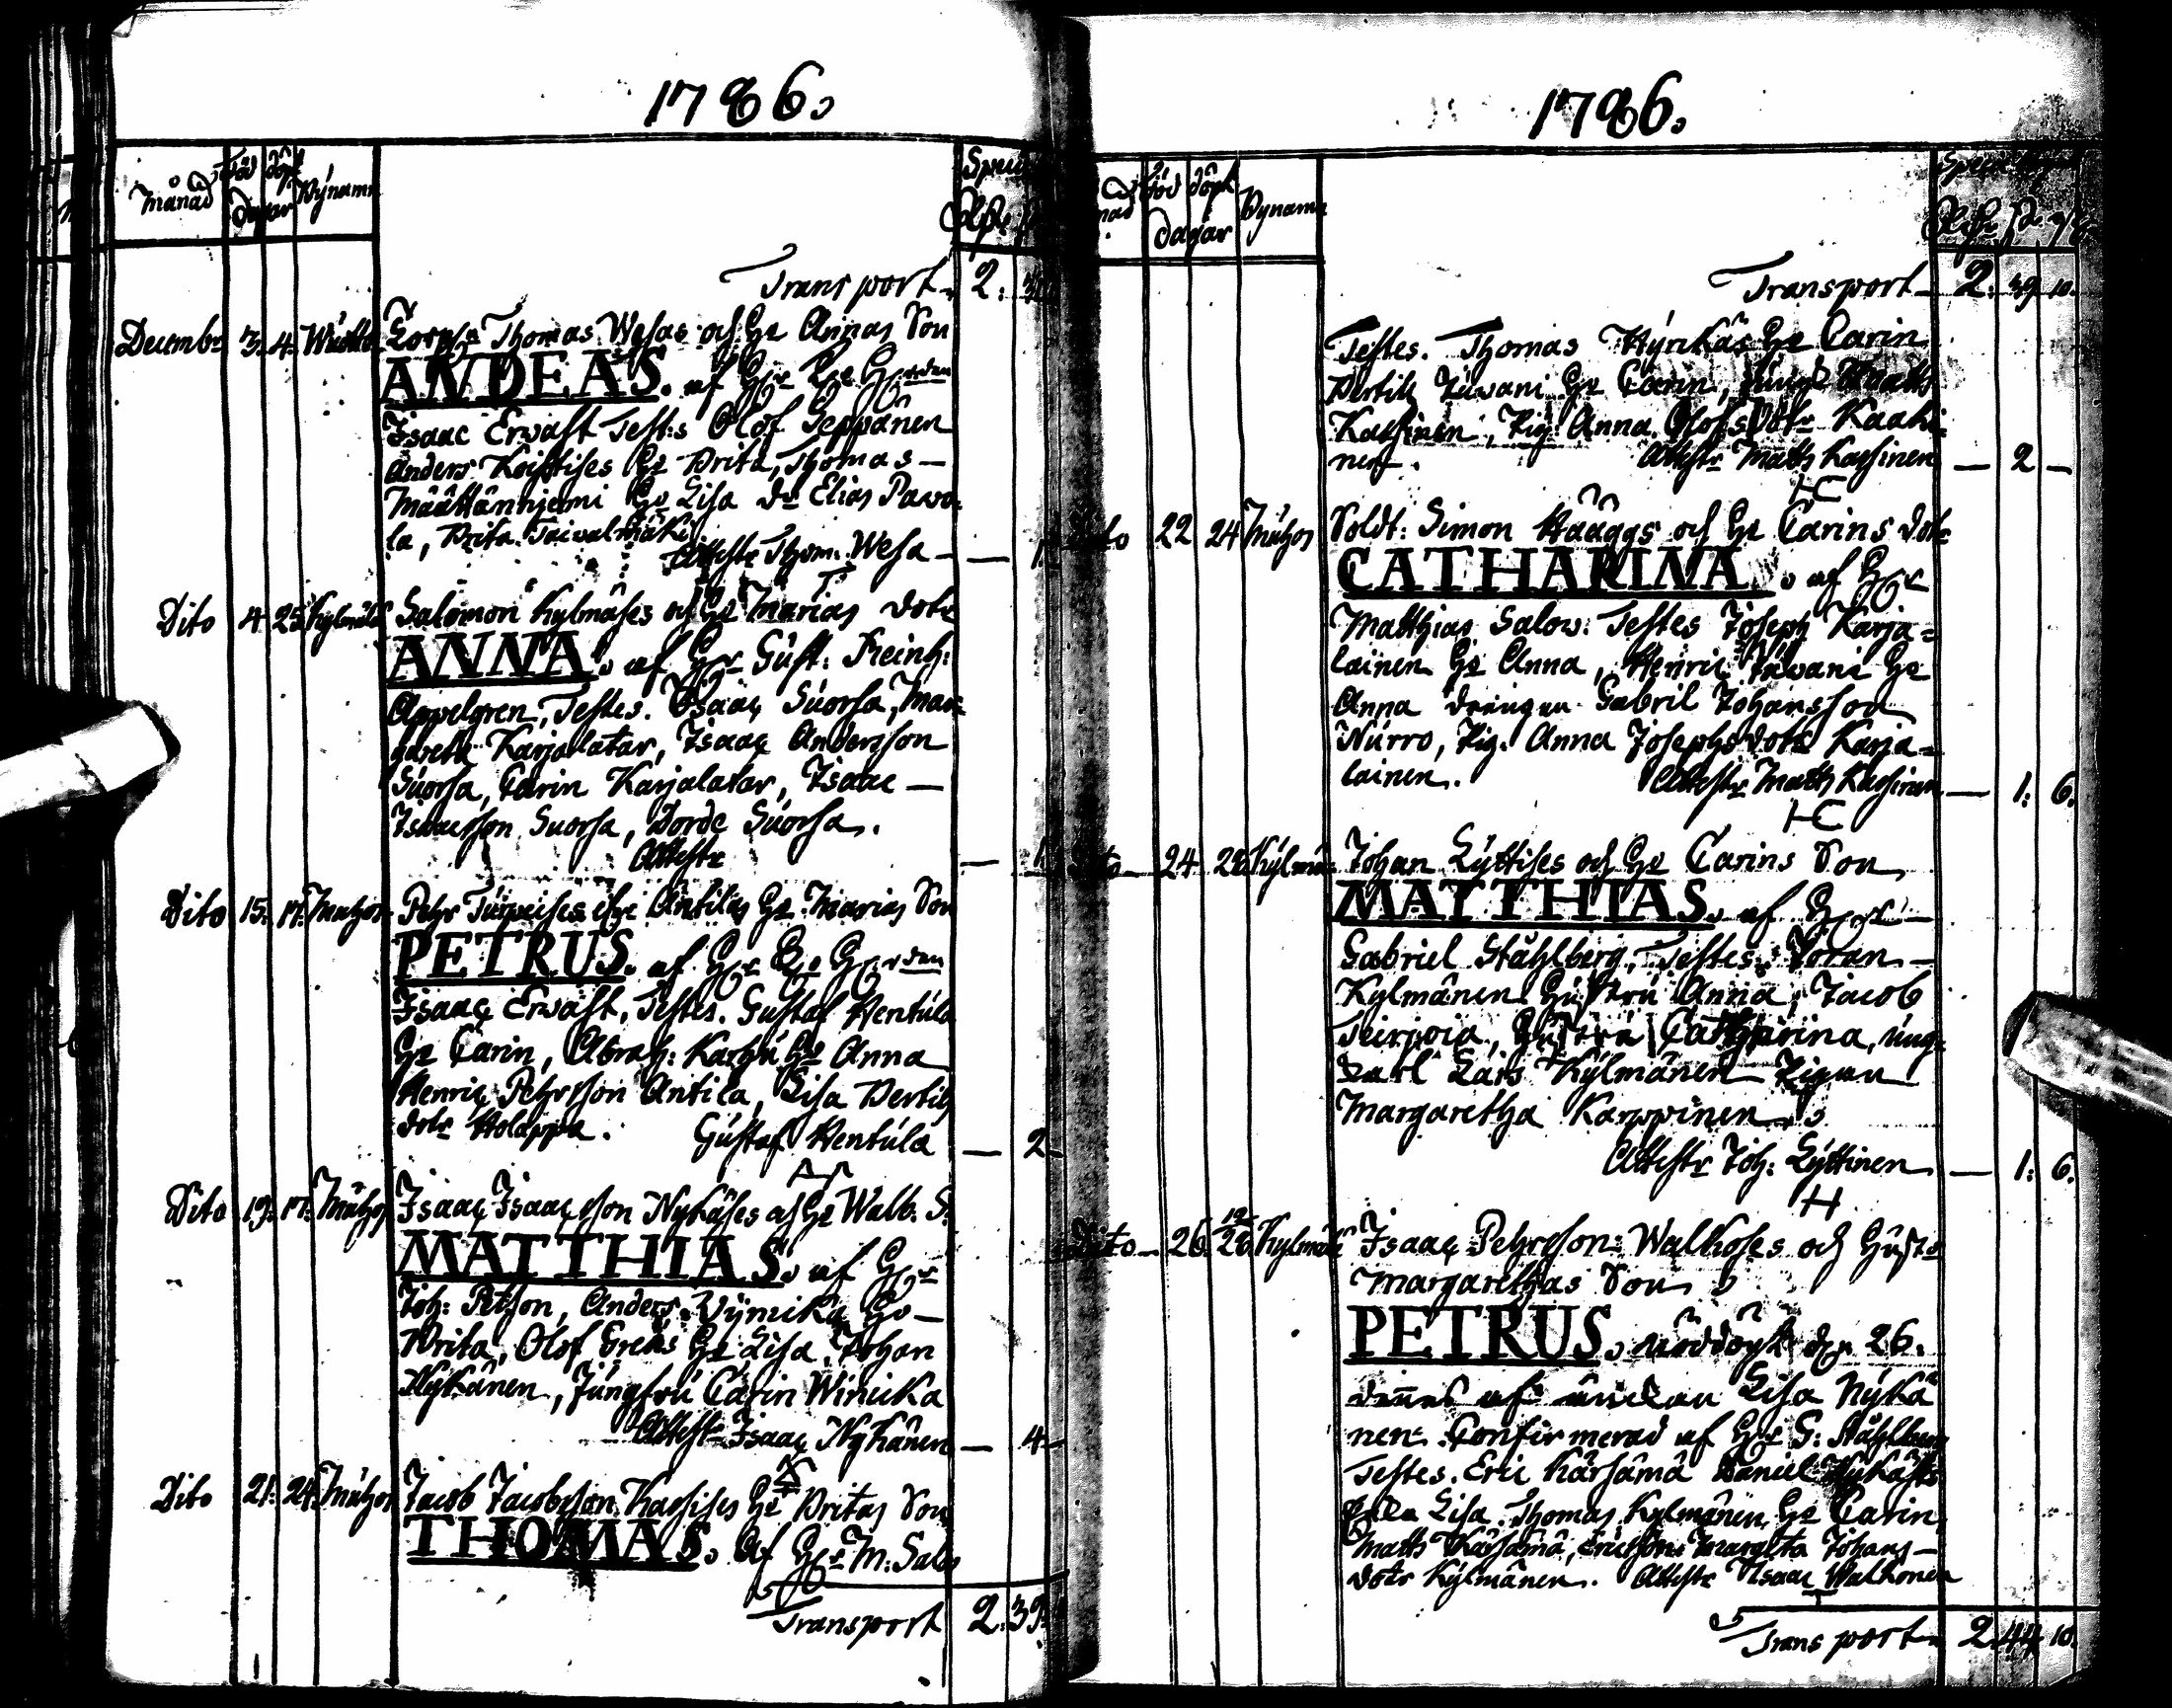 1786.
Månad Föd döpt Dagar Bÿnamn
Transport 2.
Decembr 3. 4. Corpr Thomas Wesas och Hu Annas Son
ANDEAS. af
Isaac Erwast Test:s Olof Seppänen
Anders Koistises Hu Brita, Thomas
Määttänniemi Hu Lisa Elias Pawo-
la, Brita Taivalmäki
Attestr Thom: Wesa — 1
Dito 4. 25. Kylmälä Salomon Kylmäses och Hu Marias dotr
ANNA. af Hr Gust: Reinh:
Appelgren, Testes. Isaac Suorsa, Mar-
gareta Karjalatar, Isaac Andersson
Suorsa, Carin Karjalatar, Isaac
Isaacsson Suorsa, Suorsa.
Attestr — 1
Dito 15. 17. Muhos Pehr Antilas Hu Marias Son
PETRUS. af
Isaac Erwast, Testes. Gustaf Wentula
Hu Carin, Abrah: Karhu Hu Anna
Henric Pehrsson Antila, Lisa Bertils
dotr Holappa. Gustaf Wentula — 2
Dito 19. 17. Muhos Isaac Isaacsson Nykäses och Hu Walb. S.
MATTHIAS. af Hr
Joh: Petson, Anders Hu
Brita, Olof Greks Hu Lisa, Johan
Nykänen, Jungfru Carin Winicka
Attestr Isaac Nykänen — 4
Dito 21. 24. Muhos Jacob Jacobsson Kassises Hu Britas Son
THOMAS. Af Hr M: Salo
Transport 2. 39
1786.
Föd döpt dagar Bynamn
Transport 2. 39 10.
Testes. Thomas Hyrkäs Hu Carin
Bertill Juvani Hu Carin, Matts
Kassinen, Pig. Anna Olofsdotr Kaaki-
nen. Attestr Math Kassinen — 2 —
Dito 22 24 Muhos Soldt: Simon Hååggs och Hu Carins dotr
CATHARINA. af Hr
Matthias Salow. Testes Joseph Karja-
lainen Hu Anna, Henric Juvani Hu
Anna drängen Gabril Johansson
Nurro, Pig. Anna Josephsdotr Karja-
lainen. Attestr Math Kassinen — 1. 6.
Dito 24 28 Johan Lyttises och Hu Carins Son
MATTHIAS. af Hr
Gabriel Ståhlberg, Testes. Jöran
Kylmänen Hustru Anna, Jacob
Teirioia, Hustru Catharina, ung-
karl Lars Kylmänen Pigan
Margaretha Karppinen.
Attestr Joh: Lyttinen — 1. 6.
Dito 26 28 Kylmälä Isaac Pehrsson Walkoses och Hustr
Margarethas Son
PETRUS. nöddöpt den 26.
af änckan Lisa Nykä
nen. Confirmerad af Hr G: Ståhlberg
Testes. Eric Kärsämä Daniel Nykäses
Enka Lisa. Thomas Kylmänen Hu Carin
Math Kärsämä, Ericsson. Margreta Johans-
dotr Kylmänen. Attestr Isaac Walkonen
Transport 2. 44 10.